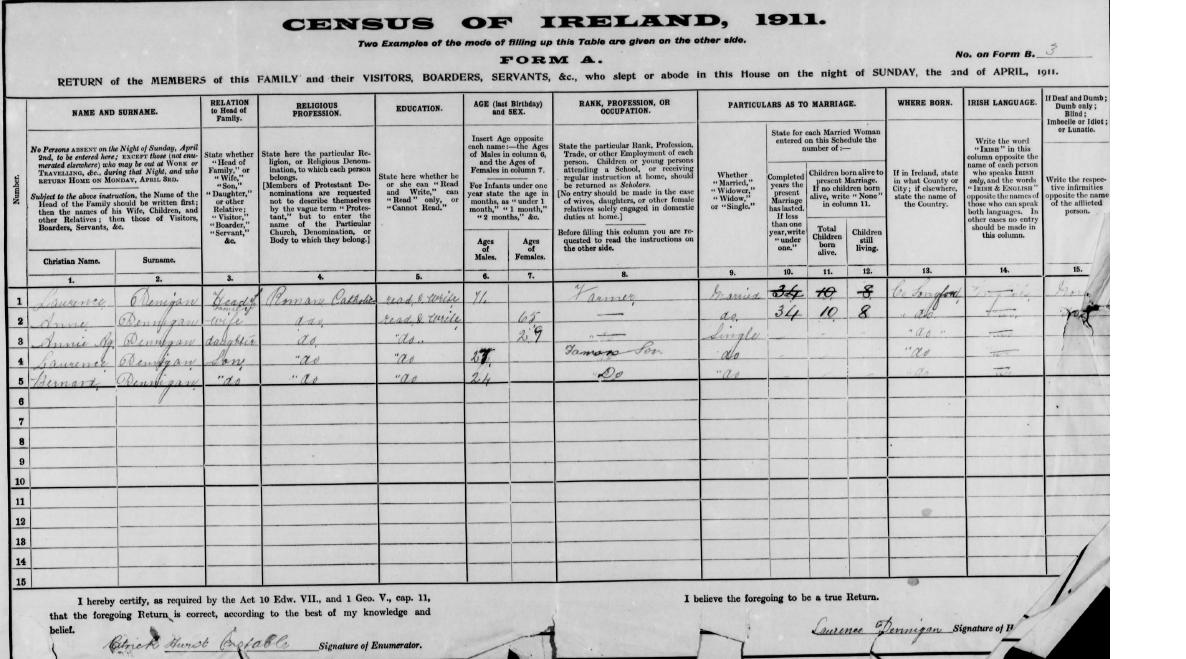 CENSUS OF IRELAND, 1911.
Two Examples of the mode of filling up this Table are given on the other side.
FORM A.
No. on Form B. 3
RETURN of the MEMBERS of this FAMILY and their VISITORS, BOARDERS, SERVANTS, &c., who slept or abode in this House on the night of SUNDAY, the 2nd of APRIL, 1911.
Number.
NAME AND SURNAME.
No Persons ABSENT on the Night of Sunday, April
2nd, to be entered here; EXCEPT those (not enu-
merated elsewhere) who may be out at WORK or
TRAVELLING, &c., during that Night, and who
RETURN HOME ON MONDAY, APRIL 3RD.
Subject to the above instruction, the Name of the
Head of the Family should be written first;
then the names of his Wife, Children, and
other Relatives; then those of Visitors,
Boarders, Servants, &c.
Christian Name.
Surname.
1.
2.
RELATION
to Head of
Family.
State whether
"Head of
Family," or
"Wife,"
"Son,"
"Daughter,"
or other
Relative;
"Visitor,"
"Boarder,"
"Servant,"
&c.
3.
RELIGIOUS
PROFESSION.
State here the particular Re-
ligion, or Religious Denom-
ination, to which each person
belongs.
[Members of Protestant De-
nominations are requested
not to describe themselves
by the vague term "Protes-
tant," but to enter the
name of the Particular
Church, Denomination, or
Body to which they belong.]
4.
EDUCATION.
State here whether he
or she can "Read
and Write," can
"Read" only, or
"Cannot Read."
5.
AGE (last Birthday)
and SEX.
Insert Age opposite
each name:—the Ages
of Males in column 6,
and the Ages of
Females in column 7.
For Infants under one
year state the age in
months, as "under 1
month," "1 month,"
"2 months," &c.
Ages
of
Males.
Ages
of
Females.
6.
7.
RANK, PROFESSION, OR
OCCUPATION.
State the particular Rank, Profession,
Trade, or other Employment of each
person. Children or young persons
attending a School, or receiving
regular instruction at home, should
be returned as Scholars.
[No entry should be made in the case
of wives, daughters, or other female
relatives solely engaged in domestic
duties at home.]
Before filling this column you are re-
quested to read the instructions on
the other side.
8.
PARTICULARS AS TO MARRIAGE.
Whether
"Married,"
"Widower,"
"Widow,"
or "Single."
State for each Married Woman
entered on this Schedule the
number of:—
Completed
years the
present
Marriage
has lasted.
If less
than one
year, write
"under
one."
Children born alive to
present Marriage.
If no children born
alive, write "None"
in column 11.
Total
Children
born
alive.
Children
still
living.
9.
10.
11.
12.
WHERE BORN.
If in Ireland, state
in what County or
City; if elsewhere,
state the name of
the Country.
13.
IRISH LANGUAGE.
Write the word
"IRISH" in this
column opposite the
name of each person
who speaks IRISH
only, and the words
"IRISH & ENGLISH"
opposite the names of
those who can speak
both languages. In
other cases no entry
should be made in
this column.
14.
If Deaf and Dumb;
Dumb only;
Blind;
Imbecile or Idiot;
or Lunatic.
Write the respec-
tive infirmities
opposite the name
of the afflicted
person.
15.
1 Laurence Denigan Head of Family Roman Catholic read & write 71 Farmer Married 34 10 8 Co Longford
2 Anne Dennigan Wife do read & write 65 — do 34 10 8 do —
3 Annie Dennigan daughter do "do 29 — Single "do —
4 Laurence Dennigan Son "do "do 27 Farmers Son do "do —
5 Bernard Dennigan "do "do "do 24 Do "do do —
6
7
8
9
10
11
12
13
14
15
I hereby certify, as required by the Act 10 Edw. VII., and 1 Geo. V., cap. 11,
that the foregoing Return is correct, according to the best of my knowledge and
belief.
Constable Signature of Enumerator.
I believe the foregoing to be a true Return.
Laurence Dennigan Signature of H